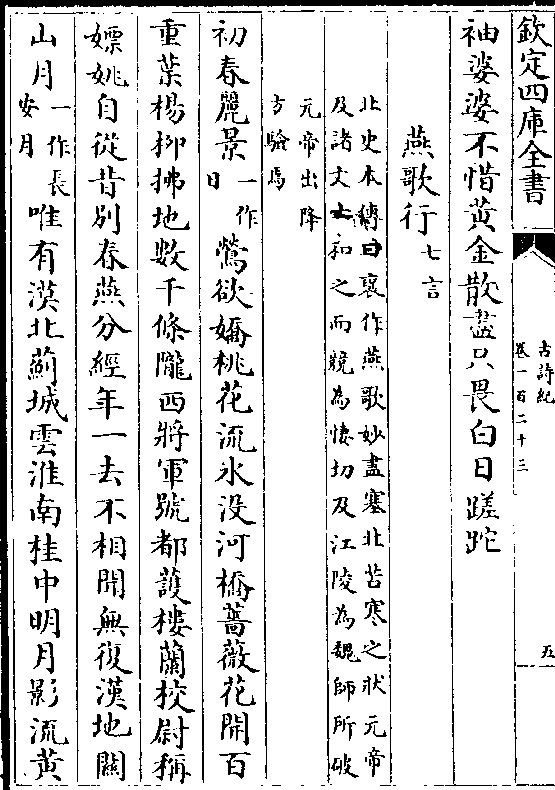 欽定四庫全書
古詩紀
卷一百二十三
五
袖婆娑不惜黃金散盡只畏白日蹉跎
燕歌行七言
北史本傳曰襃作燕歌妙盡塞北苦寒之狀元帝
及諸文士和之而競為悽切及江陵為魏師所破
元帝出降
方驗焉
初春麗景一作日鶯欲嬌桃花流水没河橋薔薇花開百
重葉楊柳拂地數千條隴西將軍號都護樓蘭校尉稱
嫖姚自從昔別春燕分經年一去不相聞無復漢地關
山月一作長安月唯有漠北薊城雲淮南桂中明月影流黃